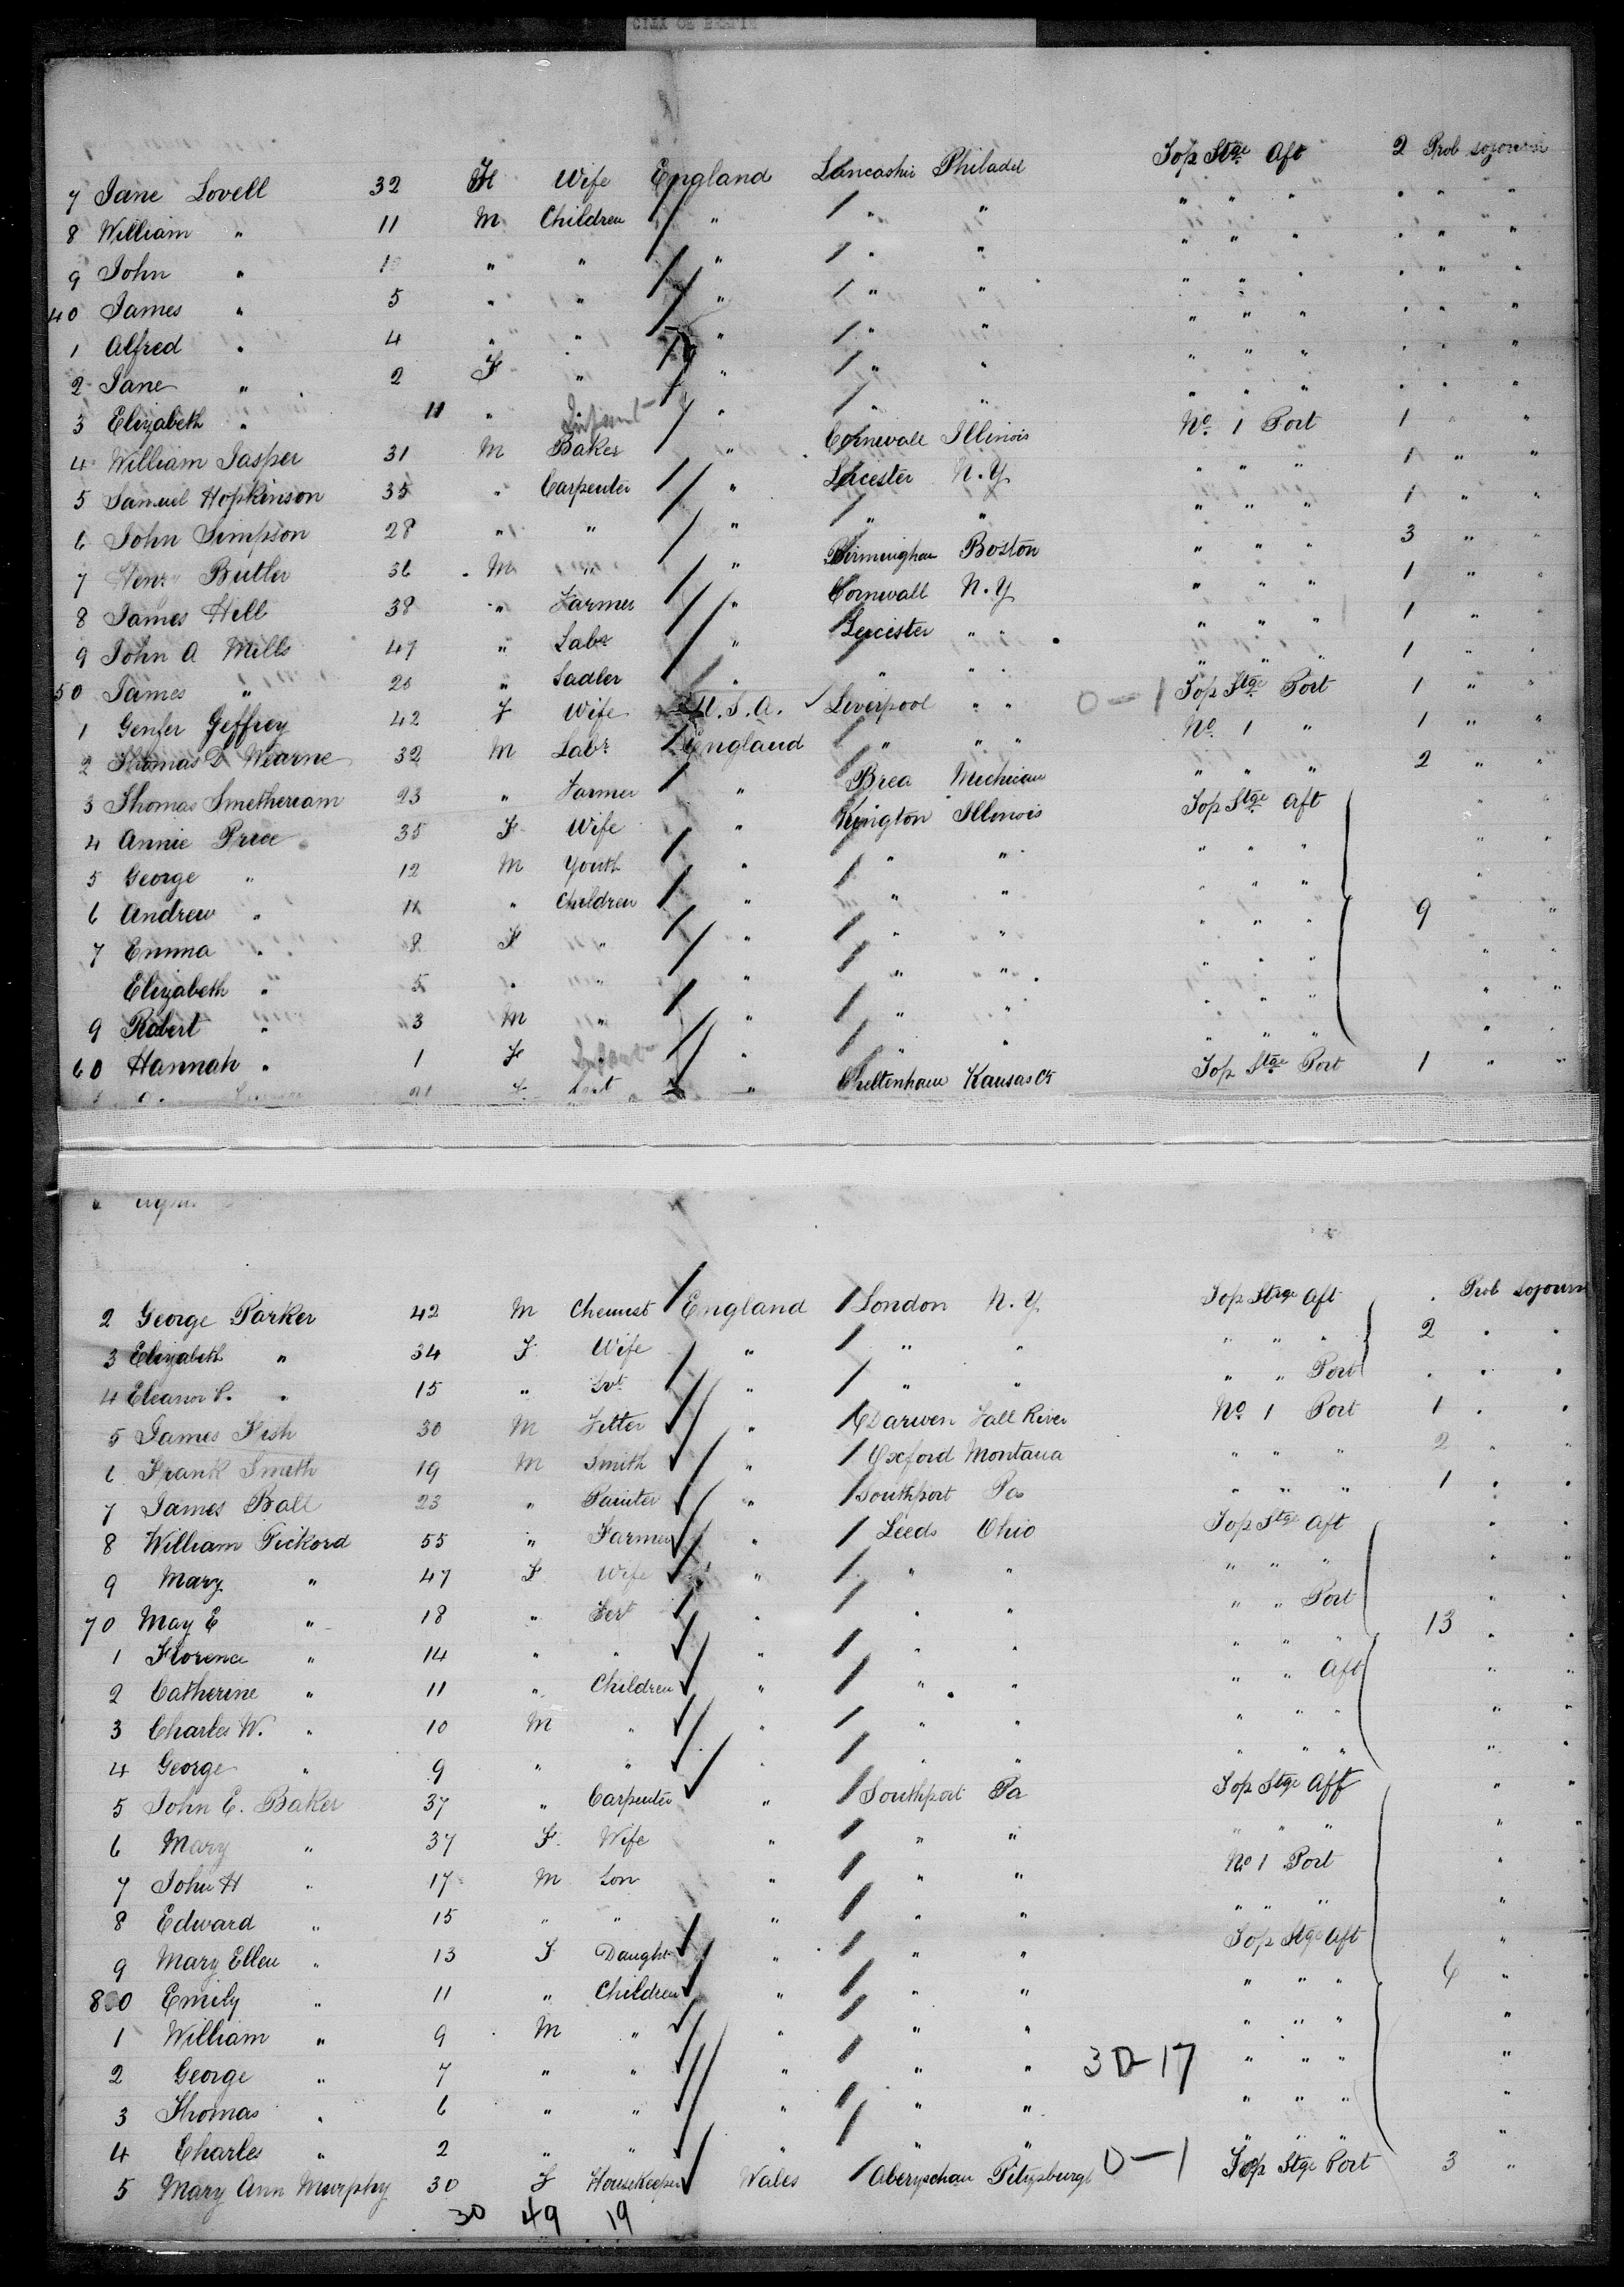 7 Jane Lovell 32 F Wife England Lancashir Philadel Top Stge Aft 2 Prob sojourn
8 William " 11 M Children " " " " " " " " "
9 John " " " " " " " " " " " "
40 James " 5 " " " " " " " " " " "
1 Alfred " 4 " " " " " " " " " " "
2 Jane " 2 F " " " " " " " " " "
3 Elizabeth " 11 " Infant " " " " " " " " "
4 William Jasper 31 M Baker " Cornwall Illinois No. 1 Port 1 " "
5 Samuel Hopkinson 35 " Carpenter " Leicester N.Y. " " " 1 " "
6 John Simpson 28 " " " " " " " " 1 " "
7 Henry Butler 36 M " " Birmingham Boston " " " 3 " "
8 James Hill 38 " Farmer " Cornwall N.Y. " " " 1 " "
9 John A Mills 47 " Labr " Leicester " " " " " 1 " "
50 James " " Sadler " " " " " " " 1 " "
1 Genfer Geffrey 42 F Wife U.S.A. Liverpool " " 0-1 Top Stge Port 1 " "
2 Thomas D Wearne 32 M Labr England " " " No. 1 " 1 " "
3 Thomas Smetheream 23 " Farmer " Brea Michican " " " 2 " "
4 Annie Price 35 F Wife " Kington Illinois Top Stge Aft " "
5 George " 12 M Youth " " " " " " " "
6 Andrew " 11 " Children " " " " " " 9 "
7 Emma " 8 F " " " " " " " " "
Elizabeth " 5 " " " " " " " " " "
9 Robert " 3 M " " " " " " " " "
60 Hannah " 1 F Infant " " " " " " " "
F " Cheltenham Kansas Cy Top Stge Port 1 " "
2 George Parker 42 M Chemist England London N.Y. Top Stge Aft Prob sojourn
3 Elizabeth " 34 F Wife " " " " " " 2 " "
4 Eleanor P. " 15 " Svt " " " " " Port " " "
5 James Fish 30 M Fitter " Darwen Fall River No. 1 Port 1 " "
6 Frank Smith 19 M Smith " Oxford Montana " " " 2 " "
7 James Ball 23 " Painter " Southport Pa " " " 1 " "
8 William Pickord 55 " Farmer " Leeds Ohio Top Stge Aft " "
9 Mary " 47 F Wife " " " " " " " "
70 May E " 18 " Sert " " " " " Port " "
1 Florence " 14 " " " " " " " " 13 " "
2 Catherine " 11 " Children " " " " " Aft " "
3 Charles W. " 10 M " " " " " " " " "
4 George " 9 " " " " " " " " " "
5 John E. Baker 37 " Carpenter " Southport Pa Top Stge Aft " "
6 Mary " 37 F Wife " " " " " " " "
7 John H " 17 M Son " " " No 1 Port " "
8 Edward " 15 " " " " " " " " " "
9 Mary Ellen " 13 F Daught " " " Top Stge Aft " "
80 Emily " 11 " Children " " " " " " "
1 William " 9 M " " " " " " " "
2 George " 7 " " " " " 3D-17 " " " "
3 Thomas " 6 " " " " " " " " "
4 Charles " 2 " " " " " " " " "
5 Mary Ann Murphy 30 F Housekeeper Wales Aberyschan Pittzsburgh 0-1 Top Stge Port 3 "
30 49 19